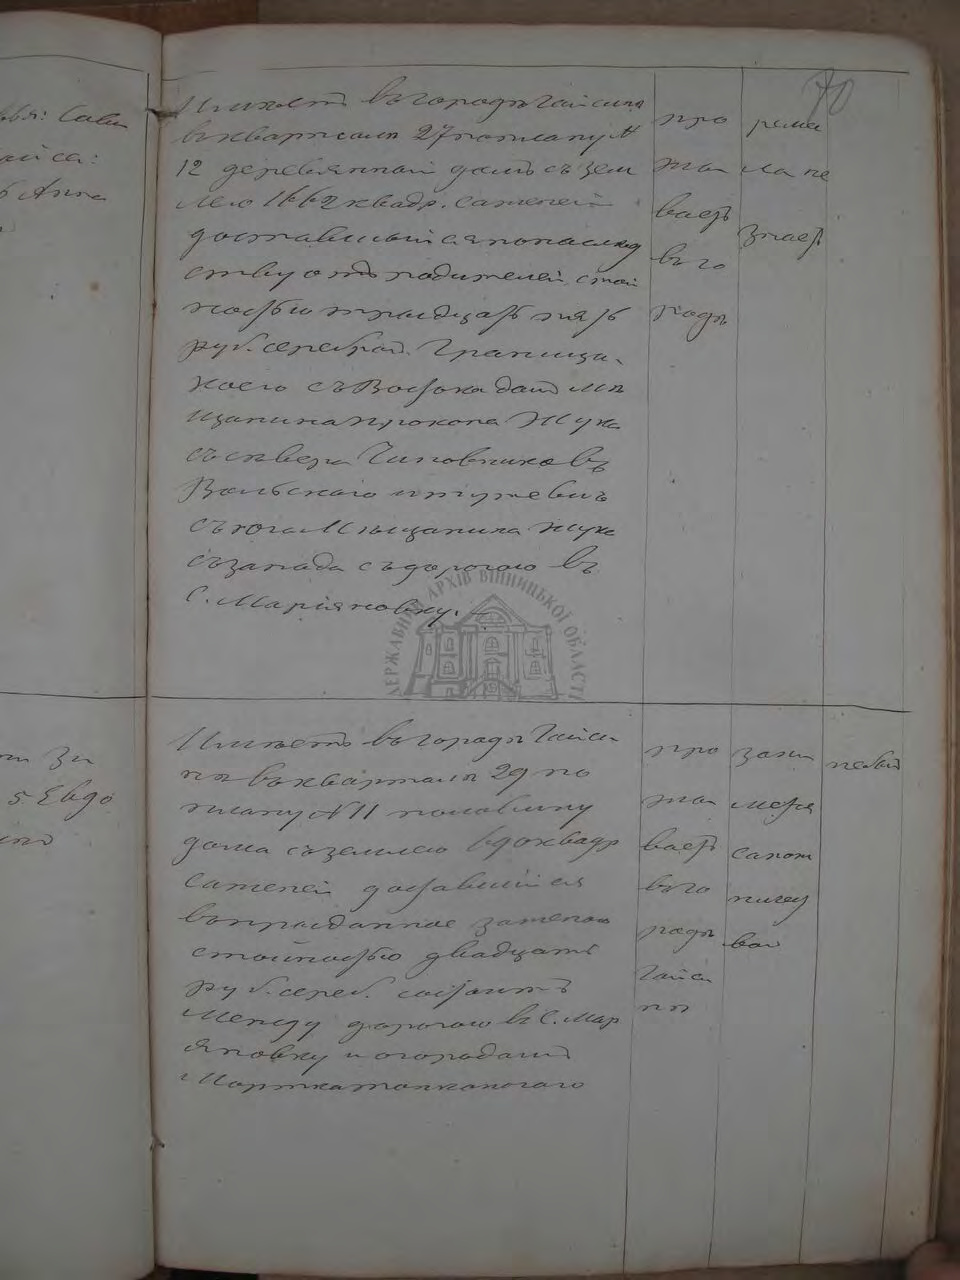 70
Имѣетъ въ городѣ Гайсинѣ
въ кварталѣ 27 по плану N
12 деревянный домъ съ зем
лею 1662 квадр. саженей
доставшийся по наслед
ству отъ родителей, стои
мостью тридцать пять
руб. серебром. Границы.
коего съ Востока домъ мѣ
щанина Прокопа Жука
съ севера Чиновниковъ
Вольского и
съ юга Мѣщанина Жука
съ запада съ дорогою въ
с. Марiяновку. —
про
жи
ваетъ
въ го
родѣ
реме
сла не
знаетъ
Имѣетъ въ городѣ Гайси
нѣ въ квартале 29 по
плану N 11 половину
дома съ землею квадр
саженей доставшийся
въ приданное за женою
стоимостью двадцать
руб. сереб. состоитъ
между дорогою въ с. Мар
яновку и огородами
про
жи
ваетъ
въ го
родѣ
Гайси
нѣ
зани
мется
сапож
ничес
вом
небыл
овья: Сави
Анна
5. Евдо
ДЕРЖАВНИЙ АРХІВ ВІННИЦЬКОЇ ОБЛАСТІ